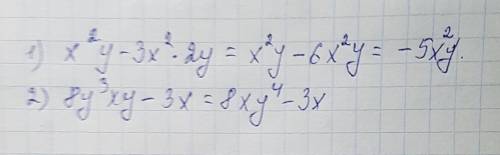 1) x²y - 3x² · 2y = x²y - 6x²y = -5x²y.
2) 8y³xy - 3x = 8xy⁴ - 3x